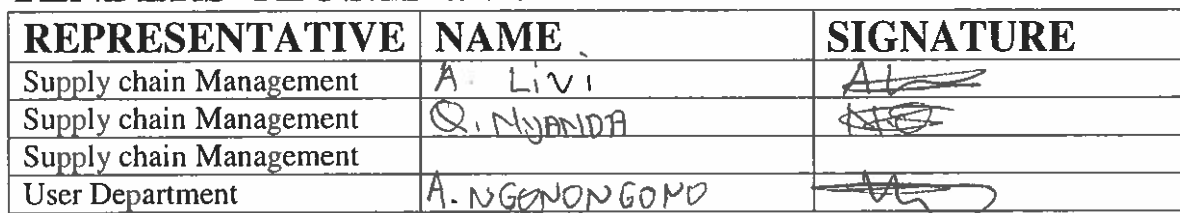 REPRESENTATIVE NAME SIGNATURE
Supply chain Management A. Livi
Supply chain Management Q. NYANDA
Supply chain Management
User Department A. NGONONGONO